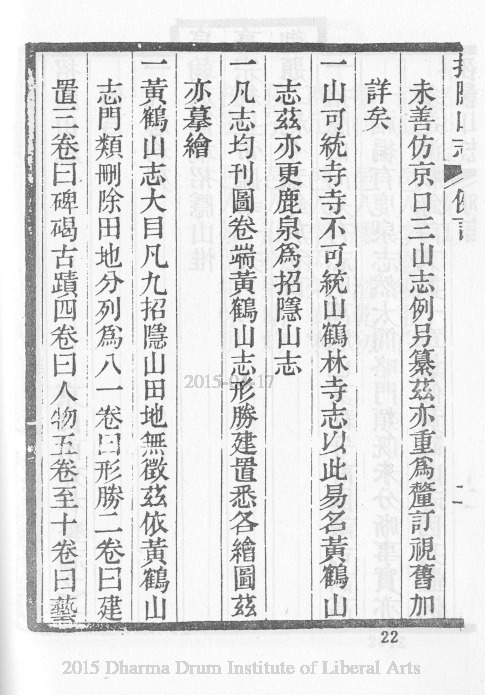 招隱山志 例言 二
未善仿京口三山志例另纂茲亦重爲釐訂視舊加
詳矣
一山可統寺寺不可統山鶴林寺志以此易名黃鶴山
志茲亦更鹿泉爲招隱山志
一凡志均刊圖卷端黃鶴山志形勝建置悉各繪圖茲
亦摹繪
一黃鶴山志大目凡九招隱山田地無徵茲依黃鶴山
志門類刪除田地分列爲八一卷曰形勝二卷曰建
置三卷曰碑碣古蹟四卷曰人物五卷至十卷曰藝
22
2015-04-17
2015 Dharma Drum Institute of Liberal Arts